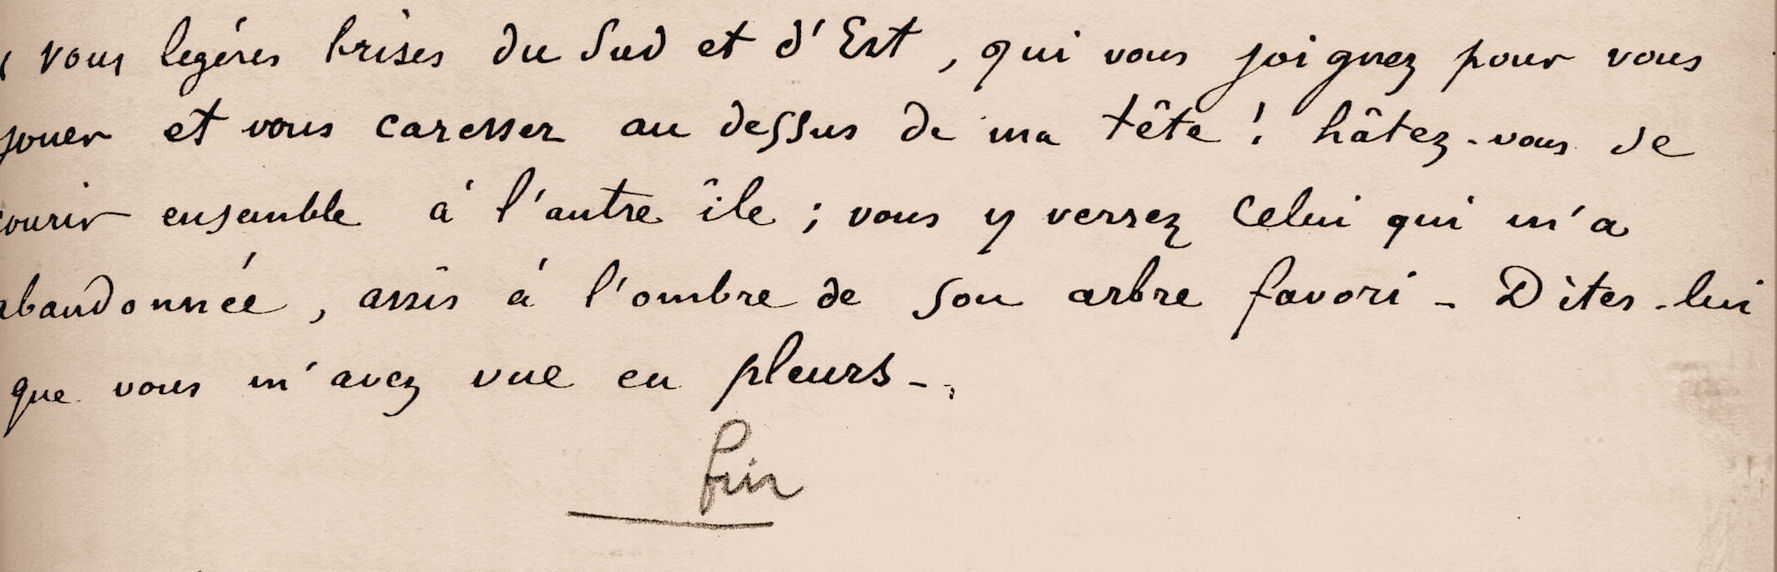 « Vous legéres brises du Sud et d'Est, qui vous joignez pour vous
jouer et vous caresser au dessus de ma tête ! hâtez-vous de
courir ensemble à l'autre île ; vous y verrez celui qui m'a
abandonnée, assis à l'ombre de son arbre favori - Dites-lui
que vous m'avez vue en pleurs -.
fin